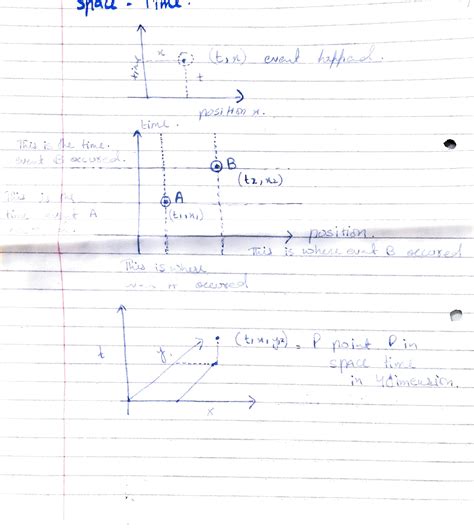 space - Time.
x
(t, x) event happend.
time
t
position x.
time.
This is the time.
event B occured.
B
(t2, x2)
This is the
time event A
A
(t1, x1)
position.
This is where event B occured
This is where
occured
t
y.
(t, x, y2) = P point P in
space time
in 4dimension.
x